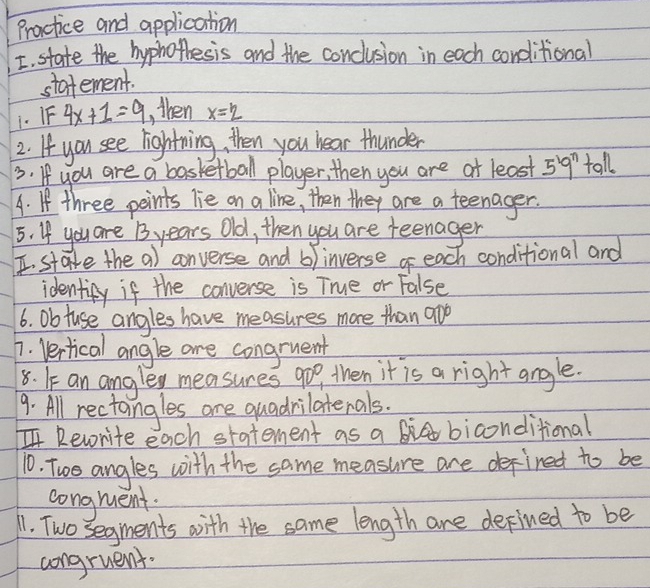 Practice and application
I. state the hyphothesis and the conclusion in each conditional
statement.
1. IF 4x+1=9, then x=2
2. If you see lightning, then you hear thunder
3. If you are a basketball player, then you are at least 5'9" tall
4. If three points lie on a line, then they are a teenager.
5. If you are 13 years Old, then you are teenager
II. state the a) converse and b) inverse of each conditional and
identify if the converse is True or False
6. Obtuse angles have measures more than 90°
7. Vertical angle are congruent
8. IF an angles measures 90°, then it is a right angle.
9. All rectangles are quadrilaterals.
III Rewrite each statement as a biconditional
10. Two angles with the same measure are defined to be
congruent.
11. Two segments with the same length are defined to be
congruent.